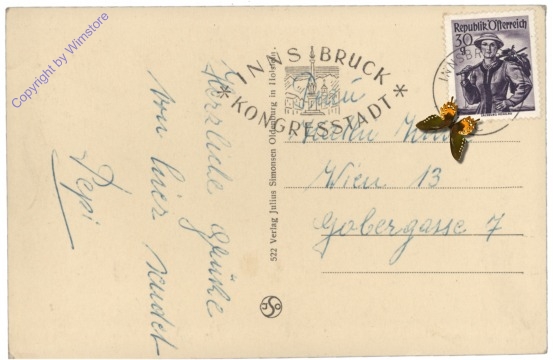 Copyright by Wimstore
Herzliche Grüße
von hier sendet
Pepi
522 Verlag Julius Simonsen Oldenburg in Holstein.
INNSBRUCK
* KONGRESSTADT *
Republik Österreich
30
g
INNSBR
Frau
Wien 13
Gobergasse 7